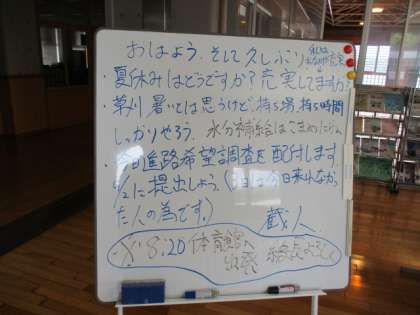 おはよう、そして久しぶり
・夏休みはどうですか？充実してますか？
・草刈 暑いとは思うけど、持ち場、持ち時間
しっかりやろう。水分補給はこまめに
・今日進路希望調査を配付します
9/2に提出しよう。(は今日来れなかっ
た人の為です。)
蔵人
8:20 体育館へ
出発 よろしく